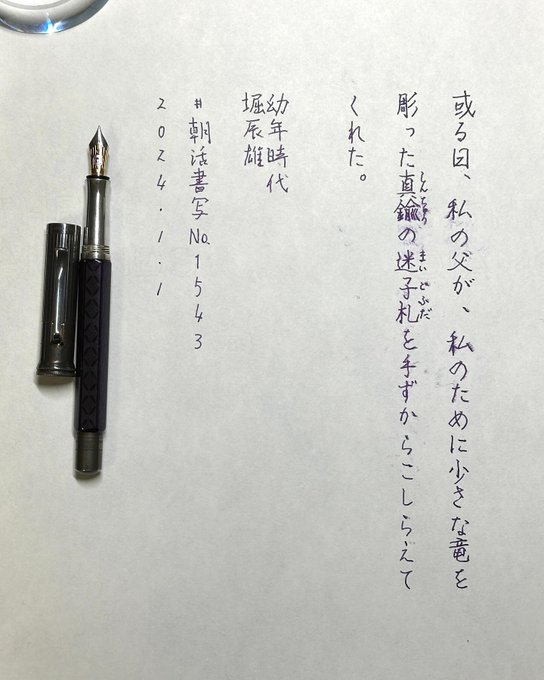 或る日、私の父が、私のために少さな竜を
彫った真鍮の迷子札を手ずからこしらえて
しんちゅう
まいごふだ
くれた。
幼年時代
堀辰雄
#朝活書写No.1543
2024.1.1